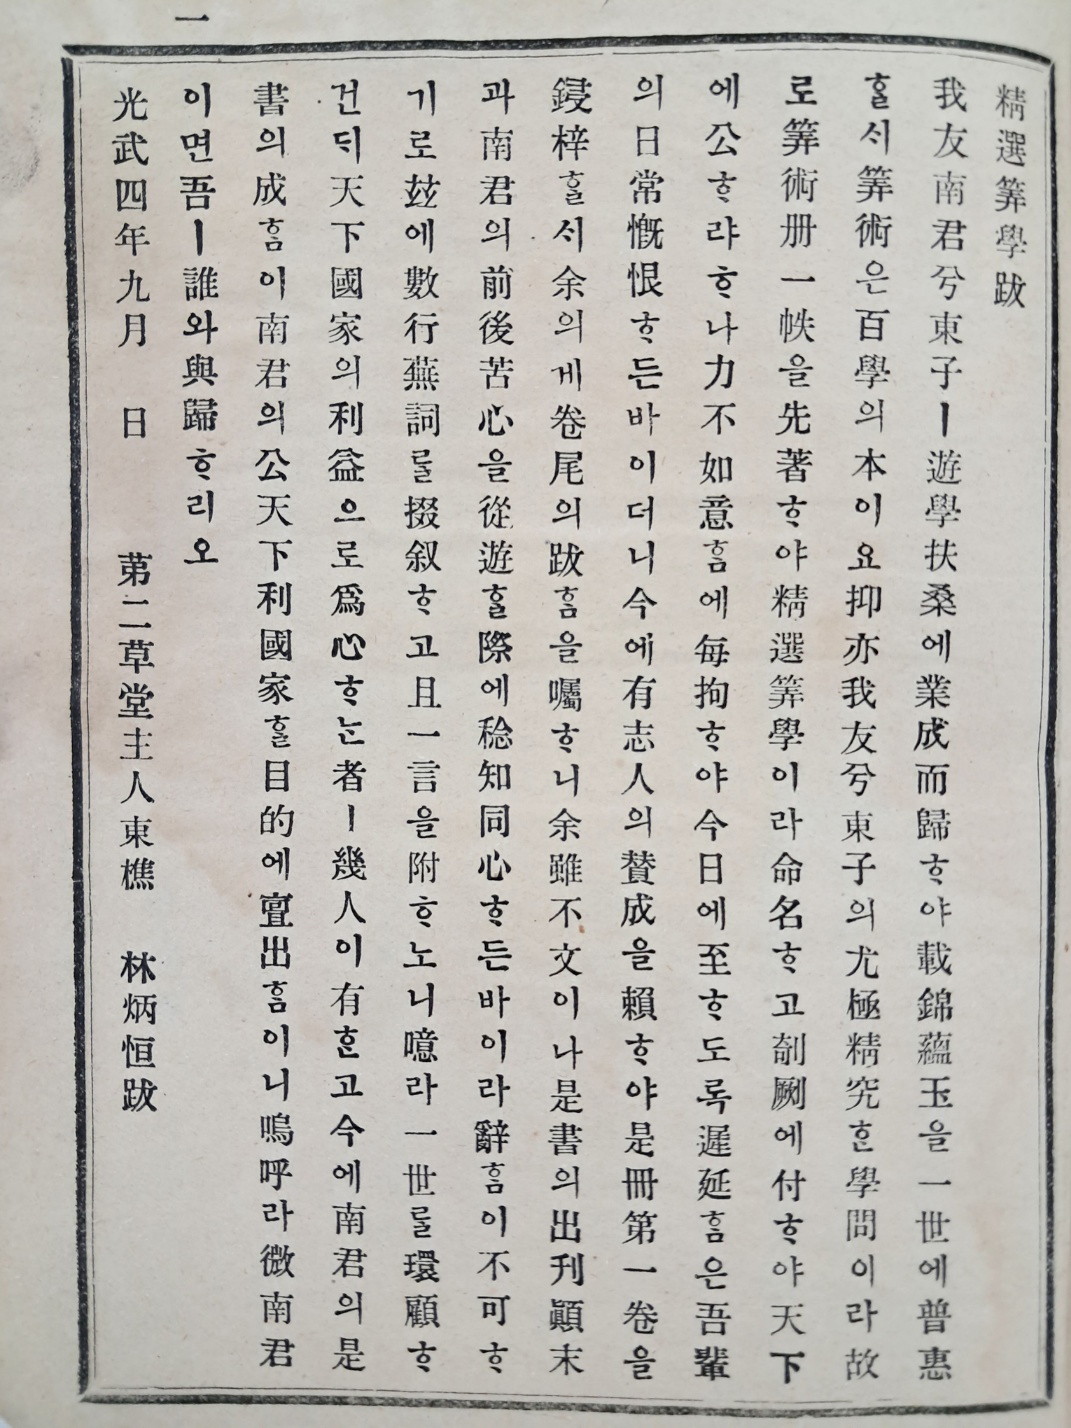 一
精選筭學跋
我友南君兮東子ㅣ遊學扶桑에業成而歸ᄒᆞ야載錦蘊玉을一世에普惠
ᄒᆞᆯᄉᆡ筭術은百學의本이요抑亦我友兮東子의尤極精究ᄒᆞᆫ學問이라故
로筭術册一帙을先著ᄒᆞ야精選筭學이라命名ᄒᆞ고剞劂에付ᄒᆞ야天下
에公ᄒᆞ랴ᄒᆞ나力不如意ᄒᆞᆷ에每拘ᄒᆞ야今日에至ᄒᆞ도록遲延ᄒᆞᆷ은吾輩
의日常慨恨ᄒᆞ든바이더니今에有志人의賛成을賴ᄒᆞ야是冊第一卷을
鋟梓ᄒᆞᆯᄉᆡ余의게卷尾의跋ᄒᆞᆷ을囑ᄒᆞ니余雖不文이나是書의出刋顚末
과南君의前後苦心을從遊ᄒᆞᆯ際에稔知同心ᄒᆞ든바이라辭ᄒᆞᆷ이不可ᄒᆞ
기로玆에數行蕪詞를掇叙ᄒᆞ고且一言을附ᄒᆞ노니噫라一世를環顧ᄒᆞ
건ᄃᆡ天下國家의利益으로爲心ᄒᆞᄂᆞᆫ者ㅣ幾人이有ᄒᆞᆫ고今에南君의是
書의成ᄒᆞᆷ이南君의公天下利國家ᄒᆞᆯ目的에亶出ᄒᆞᆷ이니嗚呼라微南君
이면吾ㅣ誰와與歸ᄒᆞ리오
光武四年九月 日 苐二草堂主人東樵 林炳恒跋